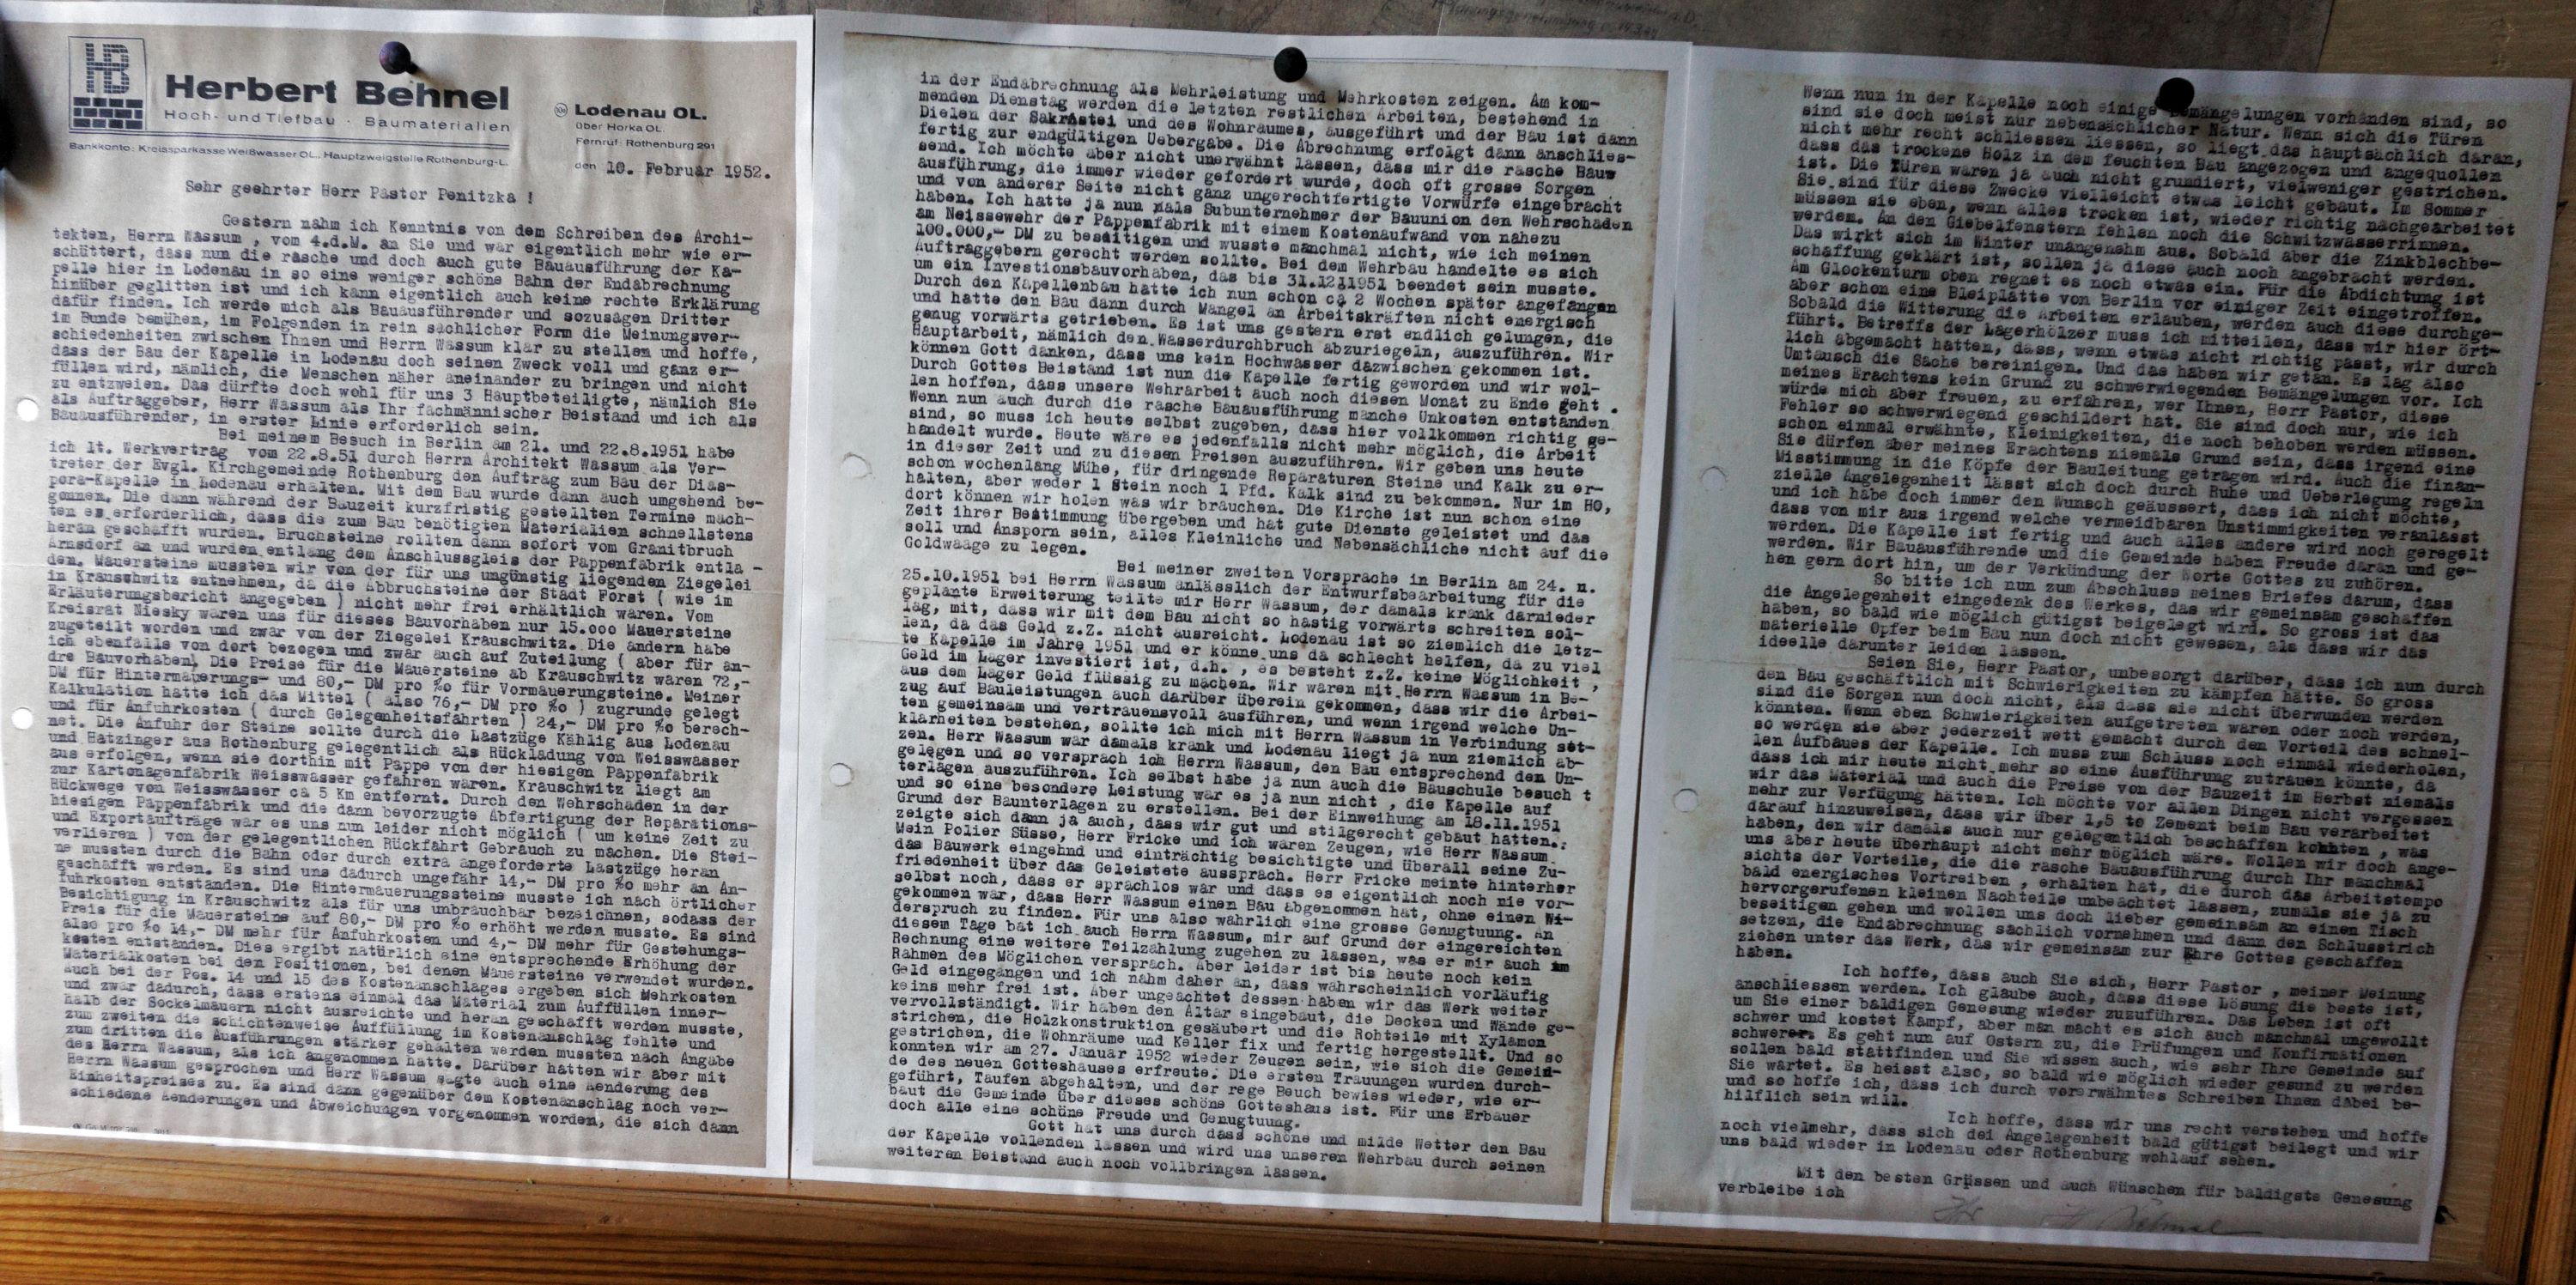 HB
Herbert Behnel
Hoch- und Tiefbau · Baumaterialien
Lodenau OL.
über Horka OL.
Fernruf: Rothenburg 291
Bankkonto: Kreissparkasse Weißwasser OL., Hauptzweigstelle Rothenburg-L.
den 10. Februar 1952.
Sehr geehrter Herr Pastor Penitzka !
Gestern nahm ich Kenntnis von dem Schreiben des Archi-
tekten, Herrn Wassum , vom 4.d.M. an Sie und war eigentlich mehr wie er-
schüttert, dass nun die rasche und doch auch gute Bauausführung der Ka-
pelle hier in Lodenau in so eine weniger schöne Bahn der Endabrechnung
hinüber geglitten ist und ich kann eigentlich auch keine rechte Erklärung
dafür finden. Ich werde mich als Bauausführender und sozusagen Dritter
im Bunde bemühen, im Folgenden in rein sachlicher Form die Meinungsver-
schiedenheiten zwischen Ihnen und Herrn Wassum klar zu stellen und hoffe,
dass der Bau der Kapelle in Lodenau doch seinen Zweck voll und ganz er-
füllen wird, nämlich, die Menschen näher aneinander zu bringen und nicht
zu entzweien. Das dürfte doch wohl für uns 3 Hauptbeteiligte, nämlich Sie
als Auftraggeber, Herr Wassum als Ihr fachmännischer Beistand und ich als
Bauausführender, in erster Linie erforderlich sein.
Bei meinem Besuch in Berlin am 21. und 22.8.1951 habe
ich lt. Werkvertrag vom 22.8.51 durch Herrn Architekt Wassum als Ver-
treter der Evgl. Kirchgemeinde Rothenburg den Auftrag zum Bau der Dias-
pora-Kapelle in Lodenau erhalten. Mit dem Bau wurde dann auch umgehend be-
gonnen. Die dann während der Bauzeit kurzfristig gestellten Termine mach-
ten es erforderlich, dass die zum Bau benötigten Materialien schnellstens
heran geschafft wurden. Bruchsteine rollten dann sofort vom Granitbruch
Arnsdorf an und wurden entlang dem Anschlussgleis der Pappenfabrik entla -
den. Mauersteine mussten wir von der für uns ungünstig liegenden Ziegelei
in Krauschwitz entnehmen, da die Abbruchsteine der Stadt Forst ( wie im
Erläuterungsbericht angegeben ) nicht mehr frei erhältlich waren. Vom
Kreisrat Niesky waren uns für dieses Bauvorhaben nur 15.000 Mauersteine
zugeteilt worden und zwar von der Ziegelei Krauschwitz. Die andern habe
ich ebenfalls von dort bezogen und zwar auch auf Zuteilung ( aber für an-
dre Bauvorhaben). Die Preise für die Mauersteine ab Krauschwitz waren 72,-
DM für Hintermauerungs- und 80,- DM pro %o für Vormauerungsteine. Meiner
Kalkulation hatte ich das Mittel ( also 76,- DM pro %o ) zugrunde gelegt
und für Anfuhrkosten ( durch Gelegenheitsfahrten ) 24,- DM pro %o berech-
net. Die Anfuhr der Steine sollte durch die Lastzüge Kählig aus Lodenau
und Hatzinger aus Rothenburg gelegentlich als Rückladung von Weisswasser
aus erfolgen, wenn sie dorthin mit Pappe von der hiesigen Pappenfabrik
zur Kartonagenfabrik Weisswasser gefahren waren. Krauschwitz liegt am
Rückwege von Weisswasser ca 5 Km entfernt. Durch den Wehrschaden in der
hiesigen Pappenfabrik und die dann bevorzugte Abfertigung der Reparations-
und Exportaufträge war es uns nun leider nicht möglich ( um keine Zeit zu
verlieren ) von der gelegentlichen Rückfahrt Gebrauch zu machen. Die Stei-
ne mussten durch die Bahn oder durch extra angeforderte Lastzüge heran
geschafft werden. Es sind uns dadurch ungefähr 14,- DM pro %o mehr an An-
fuhrkosten entstanden. Die Hintermauerungssteine musste ich nach örtlicher
Besichtigung in Krauschwitz als für uns unbrauchbar bezeichnen, sodass der
Preis für die Mauersteine auf 80,- DM pro %o erhöht werden musste. Es sind
also pro %o 14,- DM mehr für Anfuhrkosten und 4,- DM mehr für Gestehungs-
kosten entstanden. Dies ergibt natürlich eine entsprechende Erhöhung der
Materialkosten bei den Positionen, bei denen Mauersteine verwendet wurden.
Auch bei der Pos. 14 und 15 des Kostenanschlages ergeben sich Mehrkosten
und zwar dadurch, dass erstens einmal das Material zum Auffüllen inner-
halb der Sockelmauern nicht ausreichte und heran geschafft werden musste,
zum zweiten die schichtenweise Auffüllung im Kostenanschlag fehlte und
zum dritten die Ausführungen stärker gehalten werden mussten nach Angabe
des Herrn Wassum, als ich angenommen hatte. Darüber hatten wir aber mit
Herrn Wassum gesprochen und Herr Wassum sagte auch eine Aenderung des
Einheitspreises zu. Es sind dann gegenüber dem Kostenanschlag noch ver-
schiedene Aenderungen und Abweichungen vorgenommen worden, die sich dann
in der Endabrechnung als Mehrleistung und Mehrkosten zeigen. Am kom-
menden Dienstag werden die letzten restlichen Arbeiten, bestehend in
Dielen der Sakristei und des Wohnraumes, ausgeführt und der Bau ist dann
fertig zur endgültigen Uebergabe. Die Abrechnung erfolgt dann anschlies-
send. Ich möchte aber nicht unerwähnt lassen, dass mir die rasche Bau=
ausführung, die immer wieder gefordert wurde, doch oft grosse Sorgen
und von anderer Seite nicht ganz ungerechtfertigte Vorwürfe eingebracht
haben. Ich hatte ja nun als Subunternehmer der Bauunion den Wehrschaden
am Neissewehr der Pappenfabrik mit einem Kostenaufwand von nahezu
100.000,- DM zu beseitigen und wusste manchmal nicht, wie ich meinen
Auftraggebern gerecht werden sollte. Bei dem Wehrbau handelte es sich
um ein Investionsbauvorhaben, das bis 31.12.1951 beendet sein musste.
Durch den Kapellenbau hatte ich nun schon ca 2 Wochen später angefangen
und hatte den Bau dann durch Mangel an Arbeitskräften nicht energisch
genug vorwärts getrieben. Es ist uns gestern erst endlich gelungen, die
Hauptarbeit, nämlich den Wasserdurchbruch abzuriegeln, auszuführen. Wir
können Gott danken, dass uns kein Hochwasser dazwischen gekommen ist.
Durch Gottes Beistand ist nun die Kapelle fertig geworden und wir wol-
len hoffen, dass unsere Wehrarbeit auch noch diesen Monat zu Ende geht .
Wenn nun auch durch die rasche Bauausführung manche Unkosten entstanden
sind, so muss ich heute selbst zugeben, dass hier vollkommen richtig ge-
handelt wurde. Heute wäre es jedenfalls nicht mehr möglich, die Arbeit
in dieser Zeit und zu diesen Preisen auszuführen. Wir geben uns heute
schon wochenlang Mühe, für dringende Reparaturen Steine und Kalk zu er-
halten, aber weder 1 Stein noch 1 Pfd. Kalk sind zu bekommen. Nur im HO,
dort können wir holen was wir brauchen. Die Kirche ist nun schon eine
Zeit ihrer Bestimmung übergeben und hat gute Dienste geleistet und das
soll und Ansporn sein, alles Kleinliche und Nebensächliche nicht auf die
Goldwaage zu legen.
Bei meiner zweiten Vorsprache in Berlin am 24. u.
25.10.1951 bei Herrn Wassum anlässlich der Entwurfsbearbeitung für die
geplante Erweiterung teilte mir Herr Wassum, der damals krank darnieder
lag, mit, dass wir mit dem Bau nicht so hastig vorwärts schreiten sol-
len, da das Geld z.Z. nicht ausreicht. Lodenau ist so ziemlich die letz-
te Kapelle im Jahre 1951 und er könne uns da schlecht helfen, da zu viel
Geld im Lager investiert ist, d.h. , es besteht z.Z. keine Möglichkeit ,
aus dem Lager Geld flüssig zu machen. Wir waren mit Herrn Wassum in Be-
zug auf Bauleistungen auch darüber überein gekommen, dass wir die Arbei-
ten gemeinsam und vertrauensvoll ausführen, und wenn irgend welche Un-
klarheiten bestehen, sollte ich mich mit Herrn Wassum in Verbindung set-
zen. Herr Wassum war damals krank und Lodenau liegt ja nun ziemlich ab-
gelegen und so versprach ich Herrn Wassum, den Bau entsprechend den Un-
terlagen auszuführen. Ich selbst habe ja nun auch die Bauschule besuch t
und so eine besondere Leistung war es ja nun nicht , die Kapelle auf
Grund der Baunterlagen zu erstellen. Bei der Einweihung am 18.11.1951
zeigte sich dann ja auch, dass wir gut und stilgerecht gebaut hatten.:
Mein Polier Süsse, Herr Fricke und ich waren Zeugen, wie Herr Wassum
das Bauwerk eingehnd und einträchtig besichtigte und überall seine Zu-
friedenheit über das Geleistete aussprach. Herr Fricke meinte hinterher
selbst noch, dass er sprachlos war und dass es eigentlich noch nie vor-
gekommen war, dass Herr Wassum einen Bau abgenommen hat, ohne einen Wi-
derspruch zu finden. Für uns also wahrlich eine grosse Genugtuung. An
diesem Tage bat ich auch Herrn Wassum, mir auf Grund der eingereichten
Rechnung eine weitere Teilzahlung zugehen zu lassen, was er mir auch im
Rahmen des Möglichen versprach. Aber leider ist bis heute noch kein
Geld eingegangen und ich nahm daher an, dass wahrscheinlich vorläufig
keins mehr frei ist. Aber ungeachtet dessen haben wir das Werk weiter
vervollständigt. Wir haben den Altar eingebaut, die Decken und Wände ge-
strichen, die Holzkonstruktion gesäubert und die Rohteile mit Xylamon
gestrichen, die Wohnräume und Keller fix und fertig hergestellt. Und so
konnten wir am 27. Januar 1952 wieder Zeugen sein, wie sich die Gemein-
de des neuen Gotteshauses erfreute. Die ersten Trauungen wurden durch-
geführt, Taufen abgehalten, und der rege Beuch bewies wieder, wie er-
baut die Gemeinde über dieses schöne Gotteshaus ist. Für uns Erbauer
doch alle eine schöne Freude und Genugtuung.
Gott hat uns durch dass schöne und milde Wetter den Bau
der Kapelle vollenden lassen und wird uns unseren Wehrbau durch seinen
weiteren Beistand auch noch vollbringen lassen.
Wenn nun in der Kapelle noch einige Bemängelungen vorhanden sind, so
sind sie doch meist nur nebensächlicher Natur. Wenn sich die Türen
nicht mehr recht schliessen liessen, so liegt das hauptsächlich daran,
dass das trockene Holz in dem feuchten Bau angezogen und angequollen
ist. Die Türen waren ja auch nicht grundiert, vielweniger gestrichen.
Sie sind für diese Zwecke vielleicht etwas leicht gebaut. Im Sommer
müssen sie eben, wenn alles trocken ist, wieder richtig nachgearbeitet
werden. An den Giebelfenstern fehlen noch die Schwitzwasserrinnen.
Das wirkt sich im Winter unangenehm aus. Sobald aber die Zinkblechbe-
schaffung geklärt ist, sollen ja diese auch noch angebracht werden.
Am Glockenturm oben regnet es noch etwas ein. Für die Abdichtung ist
aber schon eine Bleiplatte von Berlin vor einiger Zeit eingetroffen.
Sobald die Witterung die Arbeiten erlauben, werden auch diese durchge-
führt. Betreffs der Lagerhölzer muss ich mitteilen, dass wir hier ört-
lich abgemacht hatten, dass, wenn etwas nicht richtig passt, wir durch
Umtausch die Sache bereinigen. Und das haben wir getan. Es lag also
meines Erachtens kein Grund zu schwerwiegenden Bemängelungen vor. Ich
würde mich aber freuen, zu erfahren, wer Ihnen, Herr Pastor, diese
Fehler so schwerwiegend geschildert hat. Sie sind doch nur, wie ich
schon einmal erwähnte, Kleinigkeiten, die noch behoben werden müssen.
Sie dürfen aber meines Erachtens niemals Grund sein, dass irgend eine
Misstimmung in die Köpfe der Bauleitung getragen wird. Auch die finan-
zielle Angelegenheit lässt sich doch durch Ruhe und Ueberlegung regeln
und ich habe doch immer den Wunsch geäussert, dass ich nicht möchte,
dass von mir aus irgend welche vermeidbaren Unstimmigkeiten veranlasst
werden. Die Kapelle ist fertig und auch alles andere wird noch geregelt
werden. Wir Bauausführende und die Gemeinde haben Freude daran und ge-
hen gern dort hin, um der Verkündung der Worte Gottes zu zuhören.
So bitte ich nun zum Abschluss meines Briefes darum, dass
die Angelegenheit eingedenk des Werkes, das wir gemeinsam geschaffen
haben, so bald wie möglich gütigst beigelegt wird. So gross ist das
materielle Opfer beim Bau nun doch nicht gewesen, als dass wir das
ideelle darunter leiden lassen.
Seien Sie, Herr Pastor, unbesorgt darüber, dass ich nun durch
den Bau geschäftlich mit Schwierigkeiten zu kämpfen hätte. So gross
sind die Sorgen nun doch nicht, als dass sie nicht überwunden werden
könnten. Wenn eben Schwierigkeiten aufgetreten waren oder noch werden,
so werden sie aber jederzeit wett gemacht durch den Vorteil des schnel-
len Aufbaues der Kapelle. Ich muss zum Schluss noch einmal wiederholen,
dass ich mir heute nicht mehr so eine Ausführung zutrauen könnte, da
wir das Material und auch die Preise von der Bauzeit im Herbst niemals
mehr zur Verfügung hätten. Ich möchte vor allen Dingen nicht vergessen
darauf hinzuweisen, dass wir über 1,5 to Zement beim Bau verarbeitet
haben, den wir damals auch nur gelegentlich beschaffen konnten , was
uns aber heute überhaupt nicht mehr möglich wäre. Wollen wir doch ange-
sichts der Vorteile, die die rasche Bauausführung durch Ihr manchmal
bald energisches Vortreiben , erhalten hat, die durch das Arbeitstempo
hervorgerufenen kleinen Nachteile unbeachtet lassen, zumals sie ja zu
beseitigen gehen und wollen uns doch lieber gemeinsam an einen Tisch
setzen, die Endabrechnung sachlich vornehmen und dann den Schlusstrich
ziehen unter das Werk, das wir gemeinsam zur Ehre Gottes geschaffen
haben.
Ich hoffe, dass auch Sie sich, Herr Pastor , meiner Meinung
anschliessen werden. Ich glaube auch, dass diese Lösung die beste ist,
um Sie einer baldigen Genesung wieder zuzuführen. Das Leben ist oft
schwer und kostet Kampf, aber man macht es sich auch manchmal ungewollt
schwerer. Es geht nun auf Ostern zu, die Prüfungen und Konfirmationen
sollen bald stattfinden und Sie wissen auch, wie sehr Ihre Gemeinde auf
Sie wartet. Es heisst also, so bald wie möglich wieder gesund zu werden
und so hoffe ich, dass ich durch vorerwähntes Schreiben Ihnen dabei be-
hilflich sein will.
Ich hoffe, dass wir uns recht verstehen und hoffe
noch vielmehr, dass sich dei Angelegenheit bald gütigst beilegt und wir
uns bald wieder in Lodenau oder Rothenburg wohlauf sehen.
Mit den besten Grüssen und auch Wünschen für baldigste Genesung
verbleibe ich
Ihr H. Behnel